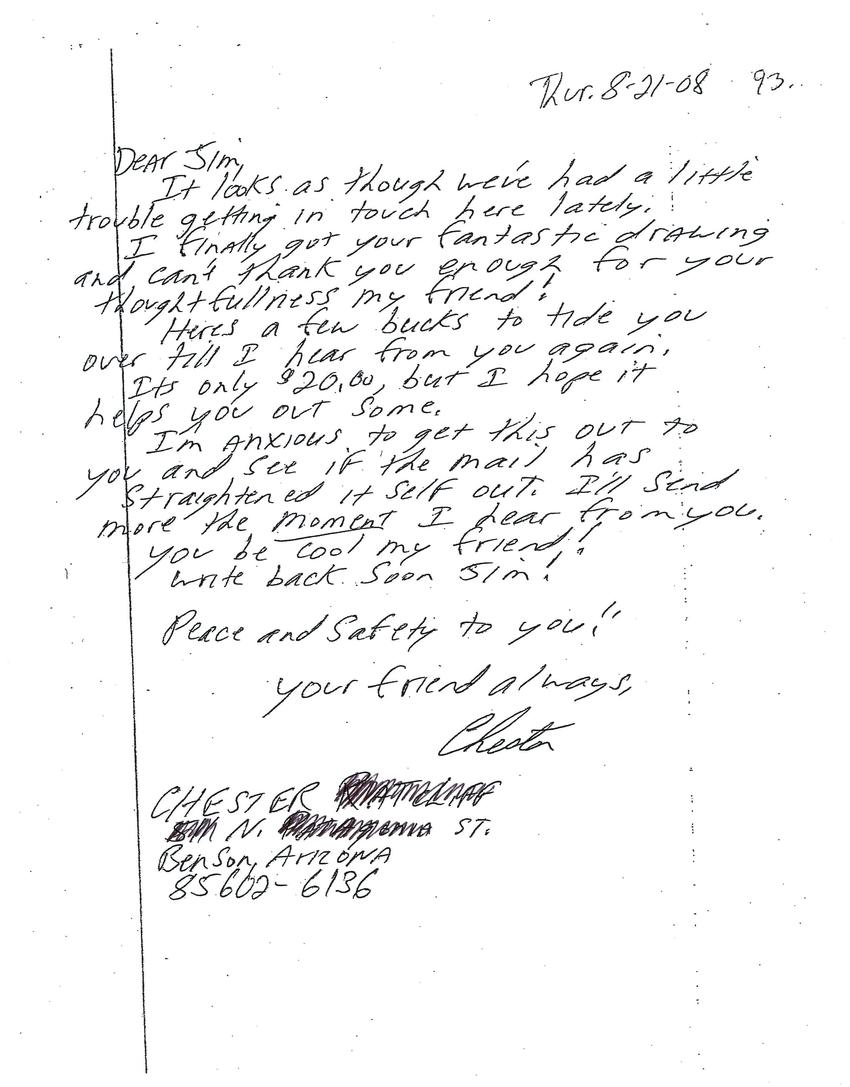 Thur. 8-21-08 93.
Dear Jim,
It looks as though we've had a little
trouble getting in touch here lately.
I finally got your fantastic drawing
and can't thank you enough for your
thoughtfullness my friend!
Heres a few bucks to tide you
over till I hear from you again.
Its only $20.00, but I hope it
helps you out some.
I'm anxious to get this out to
you and see if the mail has
straightened it self out. I'll send
more the moment I hear from you.
you be cool my friend!!
write back soon Jim!
Peace and Safety to you!!
your friend always,
Chester
CHESTER
N. ST.
Benson, Arizona
85602-6136